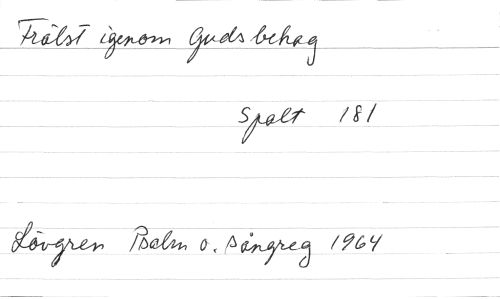 Frälst igenom Guds behag
Spalt 181
Lövgren Psalm o. sångreg 1964